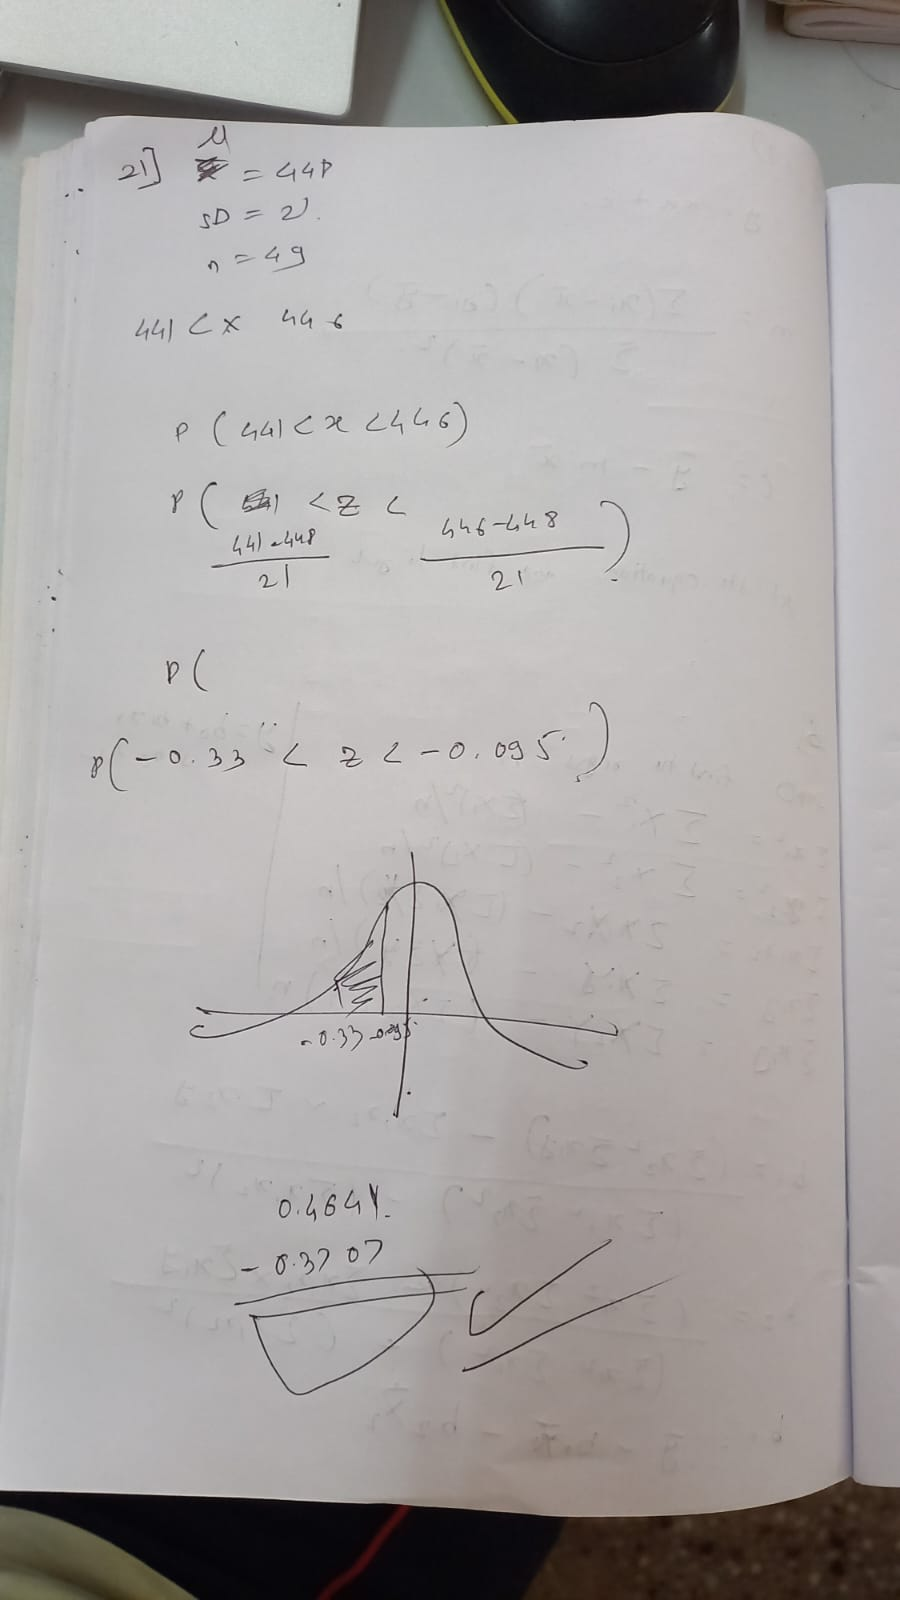 21] μ = 448
SD = 21
n = 49
441 < x 446
P ( 441 < x < 446)
P ( < z < )
441-448 446-448
21 21
P (
P( -0.33 < z < -0.095 )
-0.33 -0.095
0.4641
- 0.3707